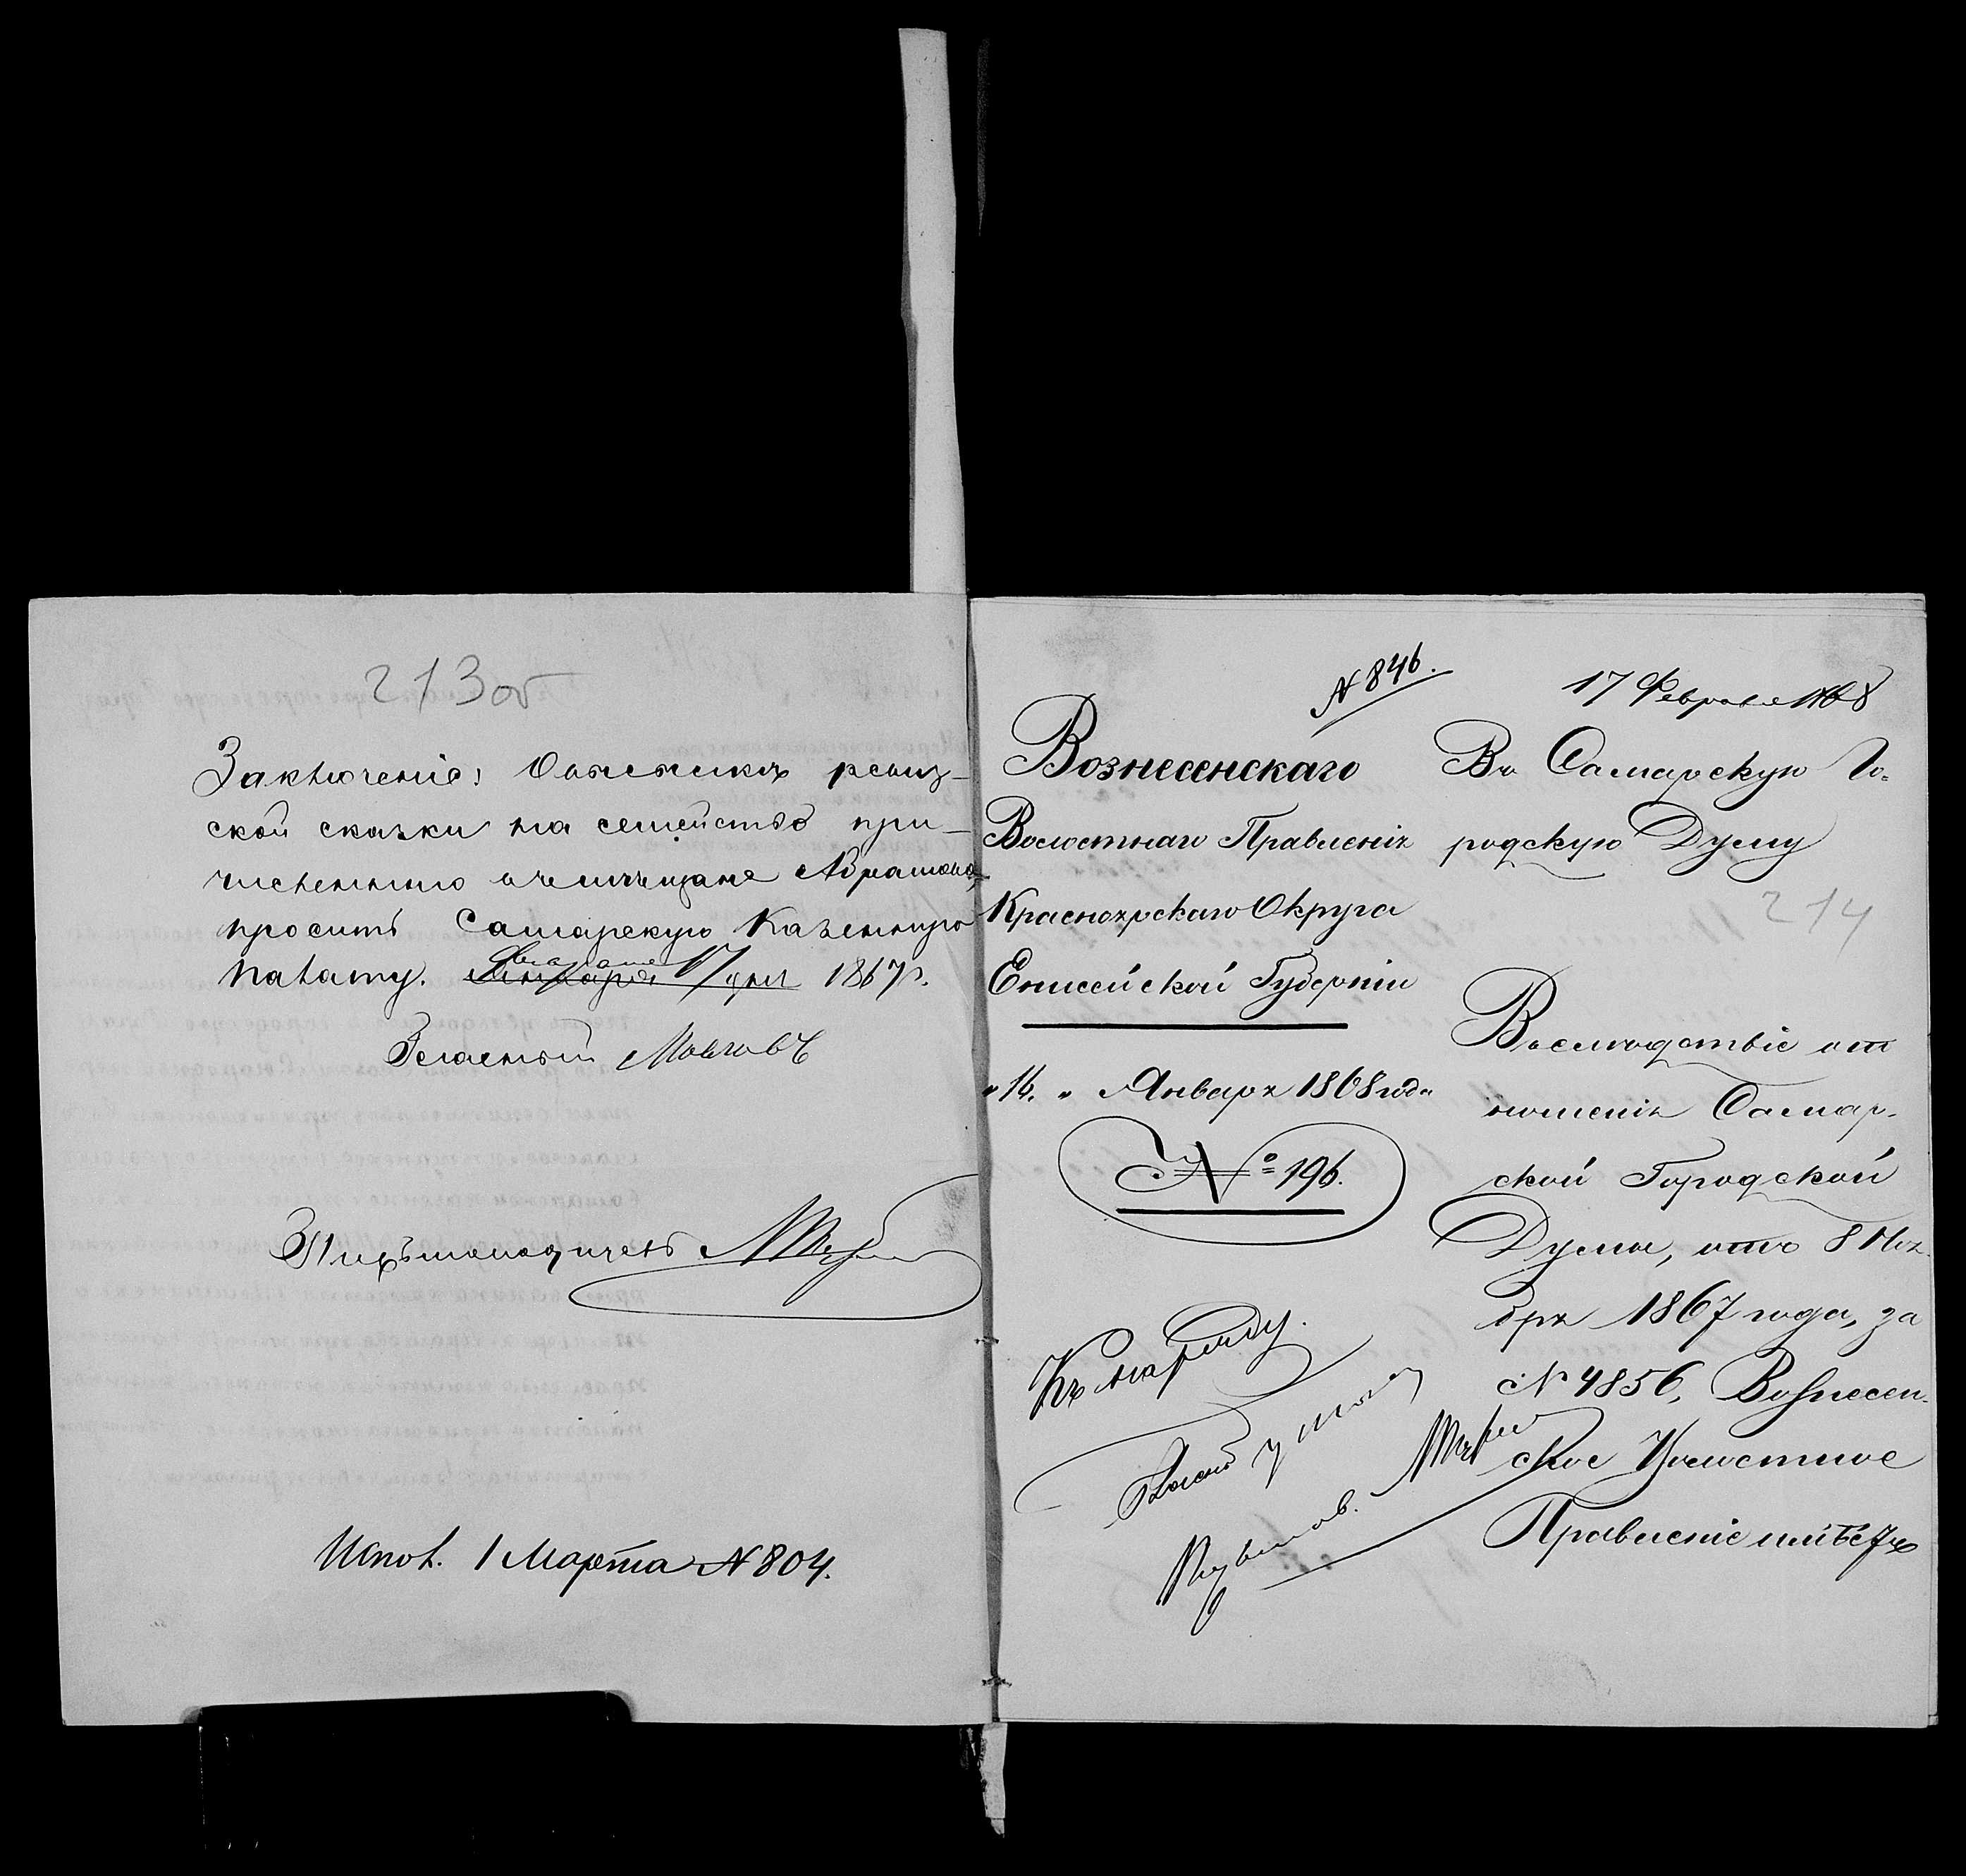 213 об
Заключеніе: О высылкѣ ревиз-
ской сказки на семейство при-
численнаго въ мѣщане Абрамова
просить Самарскую Казенную
Палату. Января 17 дня 1867 г.
Гласный
Письмоводитель
Испол. 1 Марта № 804.
№ 846.
17 Февраля 1868
Вознесенскаго
Волостнаго Правленія
Красноярскаго Округа
Енисейской Губерніи
„16. „ Января 1868 года
№ 196.
Къ наряду.
Въ Самарскую Го-
родскую Думу
214
Въ слѣдствіе от
ношенія Самар-
ской Городской
Думы, отъ 8 Ноя
бря 1867 года, за
№ 4856, Вознесен-
ское Волостное
Правленіе имѣетъ